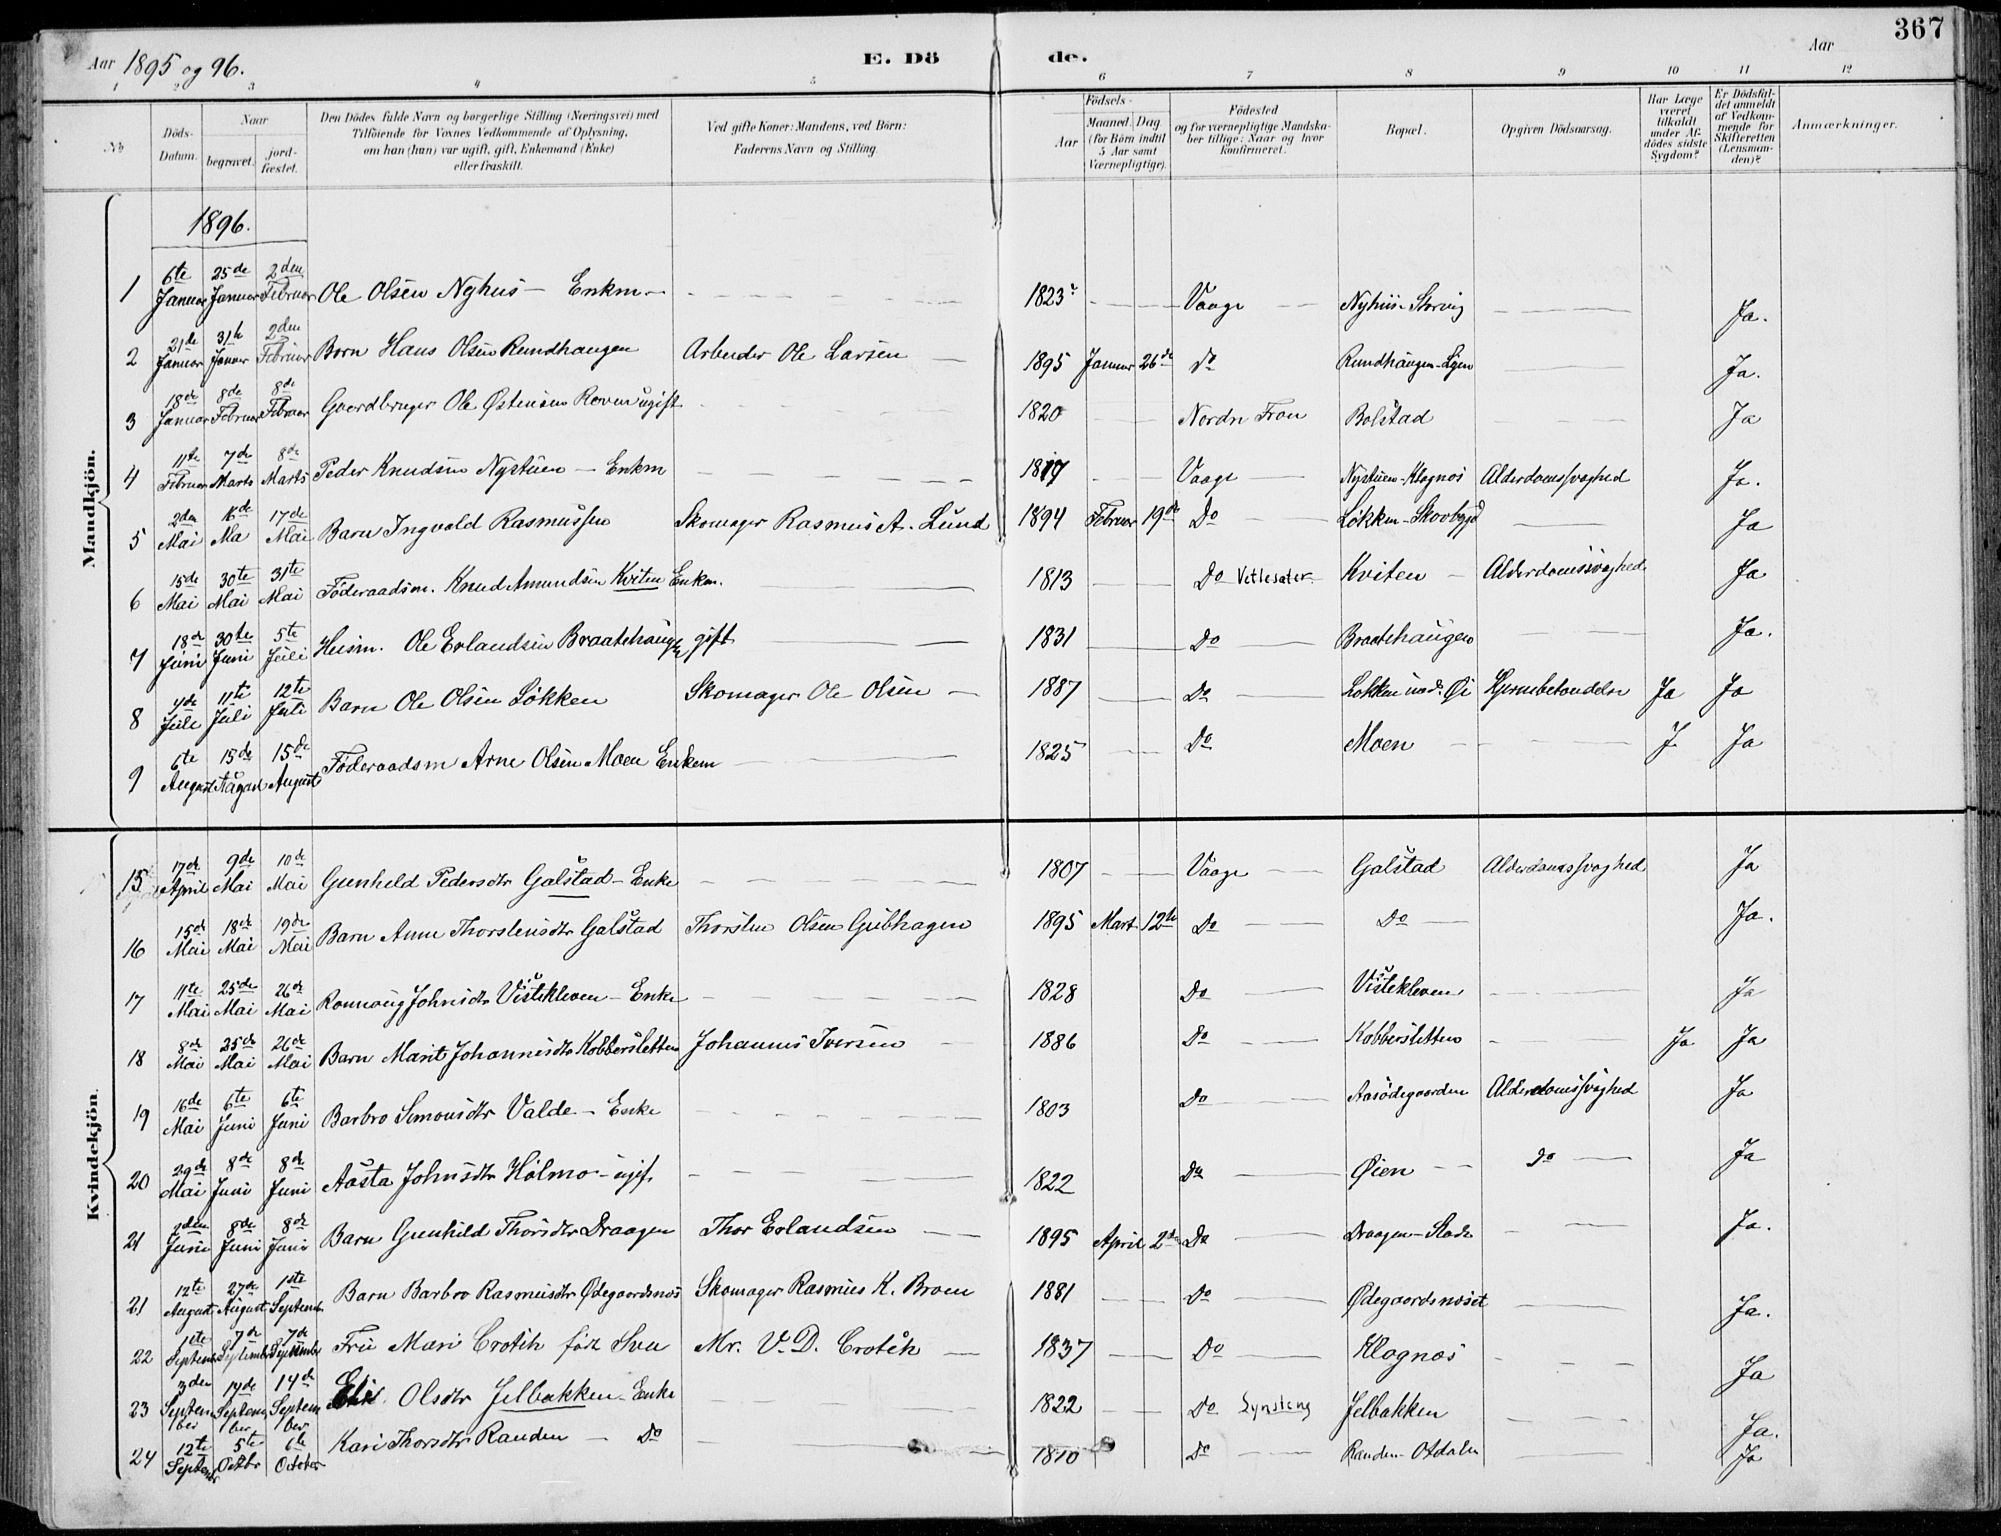 367
Aar 1895 og 96.
E. Dö de.
Aar
1 2 3 4 5 6 7 8 9 10 11 12
No
Döds-Datum.
Naar
begravet.
jord-fæstet.
Den Dödes fulde Navn og borgerlige Stilling (Næringsvei) med
Tilföiende for Voxnes Vedkommende af Oplysning,
om han (hun) var ugift, gift, Enkemand (Enke)
eller fraskilt.
Ved gifte Koner: Mandens, ved Börn:
Faderens Navn og Stilling.
Födsels-
Aar
Maaned. Dag
(for Börn indtil
5 Aar samt
Værnepligtige).
Födested
og for værnepligtige Mandska-
ber tillige: Naar og hvor
konfirmeret.
Bopæl.
Opgiven Dödsaarsag.
Har Læge
været
tilkaldt
under Af-
dödes sidste
Sygdom?
Er Dödsfal-
det anmeldt
af Vedkom-
mende for
Skifteretten
(Lensman-
den)?
Anmærkninger.
Mandkjön.
1896.
1 6te Januar 25de Januar 2den Februar Ole Olsen Nyhus - Enkm. 1823 Vaage Nyhus - Ja.
2 21de Januar 31te Januar 2den Februar Barn Hans Olsen Rundhaugen Arbeider Ole Larsen 1895 Januar 26de Do Rundhaugen - Ja.
3 18de Januar 8de Februar 8de Februar Gaardbruger Ole Østensen ugift 1820 Nordre Fron Bolstad Ja
4 11te Februar 7de Marts 8de Marts Peder Knudsen Nystuen - Enkm 1817 Vaage Nystuen-Klognæs Alderdomssvaghed Ja.
5 2den Mai 16de Ma 17de Mai Barn Ingvald Rasmussen Skomager Rasmus A. Lund 1894 Februar 19de Do Løkken-Skovbygd Ja
6 15de Mai 30te Mai 31te Mai Föderaadsm. Knud Amundsen Kviten Enkm. 1813 Do Vetlesater Kviten Alderdomssvaghed Ja
7 18de Juni 30te Juni 5te Juli Husm. Ole Erlandsen Braatehaugen gift 1831 Do Braatehaugen Ja.
8 4de Juli 11te Juli 12te Juli Barn Ole Olsen Løkken Skomager Ole Olsen 1887 Do Løkken Ja Ja
9 6te August 15de August 15de August Föderaadsm Arne Olsen Moen Enkem 1825 Do Moen J. Ja
Kvindekjön.
15 17de April 9de Mai 10de Mai Gunhild Pedersdtr Galstad - Enke 1807 Vaage Galstad Alderdomssvaghed Ja
16 15de Mai 18de Mai 19de Mai Barn Anne Thorstensdtr Galstad Thorsten Olsen Gubhagen 1895 Mart 12te Do Do Ja.
17 11te Mai 25de Mai 26de Mai Rønnaug Johnsdtr Vistekleven - Enke 1828 Do Vistekleven Ja
18 8de Mai 25de Mai 26de Mai Barn Marit Johannesdtr Kobbersletten Johannes Iversen 1886 Do Kobbersletten Ja Ja
19 16de Mai 6te Juni 6te Juni Barbro Simonsdtr Valde - Enke 1803 Do Aasødegaarden Alderdomssvaghed Ja
20 29de Mai 8de Juni 8de Juni Aasta Johnsdtr Holmo - ugif. 1822 Do Øien do Ja
21 2den Juni 8de Juni 8de Juni Barn Gunhild Thorsdtr Draagen Thor Erlandsen 1895 April 2den Do Draagen - Ja.
21 12te August 27de August 1ste Septemb. Barn Barbro Rasmusdtr Ødegaardsnæs Skomager Rasmus K. Broen 1881 Do Ødegaardsnæset Ja.
22 1ste Septemb 7de Septembr 7de September Fru Mari Crotch född Sveu Mr. V. D. Crotch 1837 Do Klognæs Ja
23 3den September 14de September 14de September Olsdtr Jelbakken - Enke 1822 Do Lynsteng Jelbakken Ja.
24 12te Septembr 5te Octbr 6te October Kari Thorsdtr Randen - Do 1810 Do Randen - Otdalen Ja